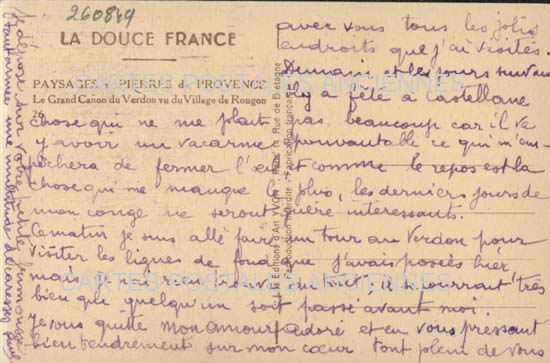 260849
LA DOUCE FRANCE
PAYSAGES & PIERRES de PROVENCE
Le Grand Cañon du Verdon vu du Village de Rougon
26
avec vous tous les jolis
endroits que j'ai visités.
Demain et les jours suivan
il y a fête à Castellane
chose qui ne me plait pas beaucoup car il va
y avoir un vacarme épouvantable ce qui m'em-
pêchera de fermer l'œil et comme le repos est la
chose qui me manque le plus, les derniers jours de
mon congé ne seront guère intéressants.
Ce matin je suis allé faire un tour au Verdon pour
visiter les lignes de fond que j'avais posées hier,
mais je n'ai rien trouvé du tout, il se pourrait très
bien que quelqu'un soit passé avant moi.
Je vous quitte mon amour adoré et en vous pressant
bien tendrement sur mon cœur tout plein de vous
je dépose sur votre petite frimousse
tant aimée une multitude de caresses
Les Editions d'Art YVON Paris Rue de Bretagne
Reproduction interdite Fabrication française
CARTES POSTALES ANCIENNES
CARTES POSTALES ANCIENNES